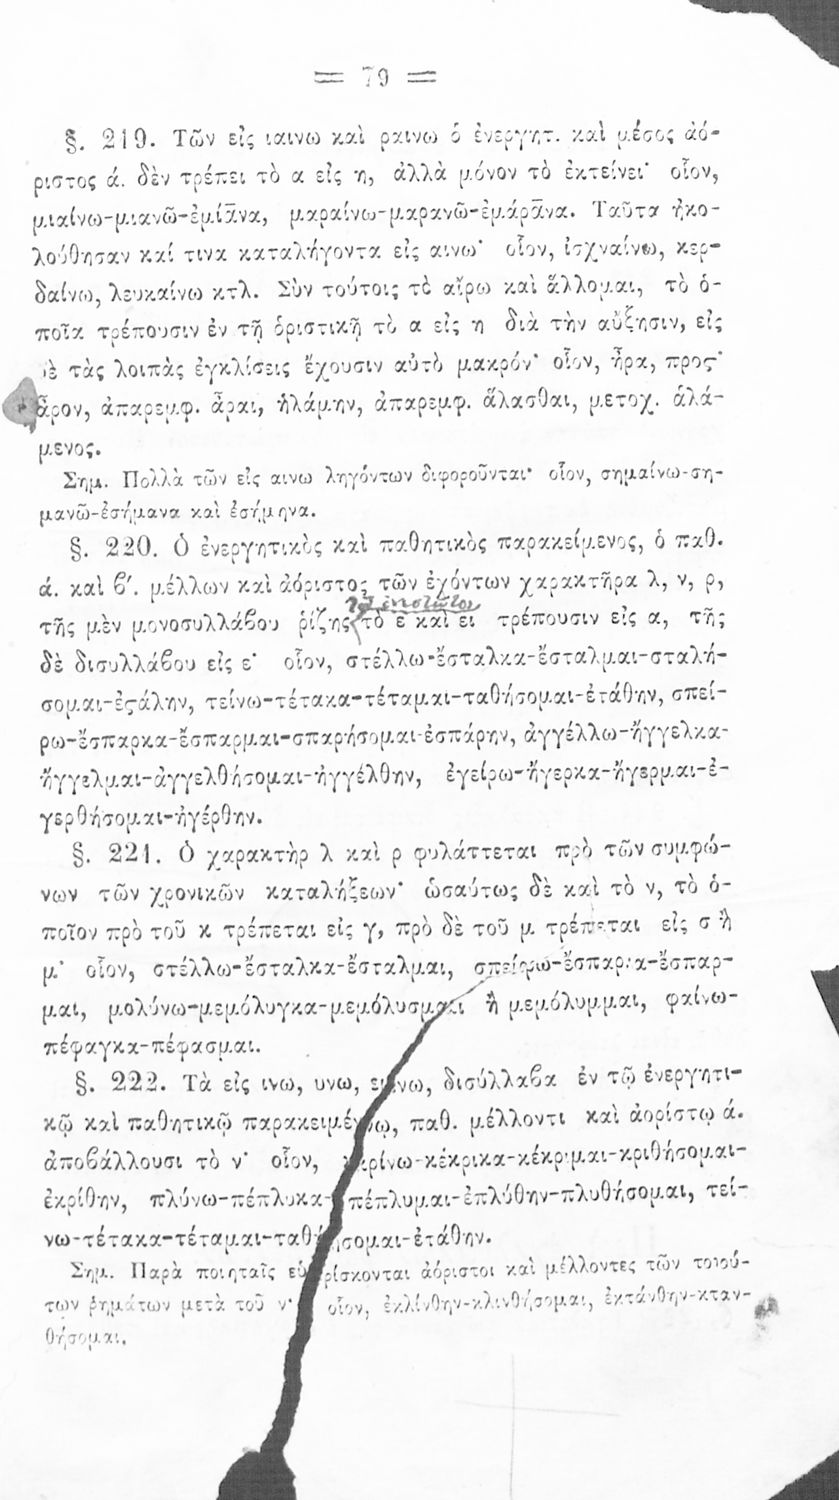 = 79 =
§. 219. Τῶν εἰς ιαινω καὶ ραινω ὁ ἐνεργητ. καὶ μέσος ἀό-
ριστος ά. δὲν τρέπει τὸ α εἰς η, ἀλλὰ μόνον τὸ ἐκτείνει· οἷον,
μιαίνω-μιανῶ-ἐμίᾱνα, μαραίνω-μαρανῶ-ἐμάρᾱνα. Ταῦτα ἠκο-
λούθησαν καί τινα καταλήγοντα εἰς αινω· οἷον, ἰσχναίνω, κερ-
δαίνω, λευκαίνω κτλ. Σὺν τούτοις τὸ αἴρω καὶ ἅλλομαι, τὸ ὁ-
ποῖα τρέπουσιν ἐν τῇ ὁριστικῇ τὸ α εἰς η διὰ τὴν αὔξησιν, εἰς
δὲ τὰς λοιπὰς ἐγκλίσεις ἔχουσιν αὐτὸ μακρόν· οἷον, ἦρα, προς·
ἆρον, ἀπαρεμφ. ἆραι, ἡλάμην, ἀπαρεμφ. ἅλασθαι, μετοχ. ἁλά-
μενος.
Σημ. Πολλὰ τῶν εἰς αινω ληγόντων διφοροῦνται· οἷον, σημαίνω-ση-
μανῶ-ἐσήμανα καὶ ἐσήμηνα.
§. 220. Ὁ ἐνεργητικὸς καὶ παθητικὸς παρακείμενος, ὁ παθ.
ά. καὶ β΄. μέλλων καὶ ἀόριστος τῶν ἐχόντων χαρακτῆρα λ, ν, ρ,
τοῦ ἐνεστῶτος
τῆς μὲν μονοσυλλάβου ῥίζης τὸ ε καὶ ει τρέπουσιν εἰς α, τῆς
δὲ δισυλλάβου εἰς ε· οἷον, στέλλω-ἔσταλκα-ἔσταλμαι-σταλή-
σομαι-ἐςάλην, τείνω-τέτακα-τέταμαι-ταθήσομαι-ἐτάθην, σπεί-
ρω-ἔσπαρκα-ἔσπαρμαι-σπαρήσομαι-ἐσπάρην, ἀγγέλλω-ἤγγελκα-
ἤγγελμαι-ἀγγελθήσομαι-ἠγγέλθην, ἐγείρω-ἤγερκα-ἤγερμαι-ἐ-
γερθήσομαι-ἠγέρθην.
§. 221. Ὁ χαρακτὴρ λ καὶ ρ φυλάττεται πρὸ τῶν συμφώ-
νων τῶν χρονικῶν καταλήξεων· ὡσαύτως δὲ καὶ τὸ ν, τὸ ὁ-
ποῖον πρὸ τοῦ κ τρέπεται εἰς γ, πρὸ δὲ τοῦ μ τρέπεται εἰς σ ἢ
μ· οἷον, στέλλω-ἔσταλκα-ἔσταλμαι, σπείρω-ἔσπαρκα-ἔσπαρ-
μαι, μολύνω-μεμόλυγκα-μεμόλυσμαι ἢ μεμόλυμμαι, φαίνω-
πέφαγκα-πέφασμαι.
§. 222. Τὰ εἰς ινω, υνω, εινω, δισύλλαβα ἐν τῷ ἐνεργητι-
κῷ καὶ παθητικῷ παρακειμένῳ, παθ. μέλλοντι καὶ ἀορίστῳ ά.
ἀποβάλλουσι τὸ ν· οἷον, κρίνω-κέκρικα-κέκριμαι-κριθήσομαι-
ἐκρίθην, πλύνω-πέπλυκα-πέπλυμαι-ἐπλύθην-πλυθήσομαι, τεί-
νω-τέτακα-τέταμαι-ταθήσομαι-ἐτάθην.
Σημ. Παρὰ ποιηταῖς εὑρίσκονται ἀόριστοι καὶ μέλλοντες τῶν τοιού-
των ῥημάτων μετὰ τοῦ ν· οἷον, ἐκλίνθην-κλινθήσομαι, ἐκτάνθην-κταν-
θήσομαι.